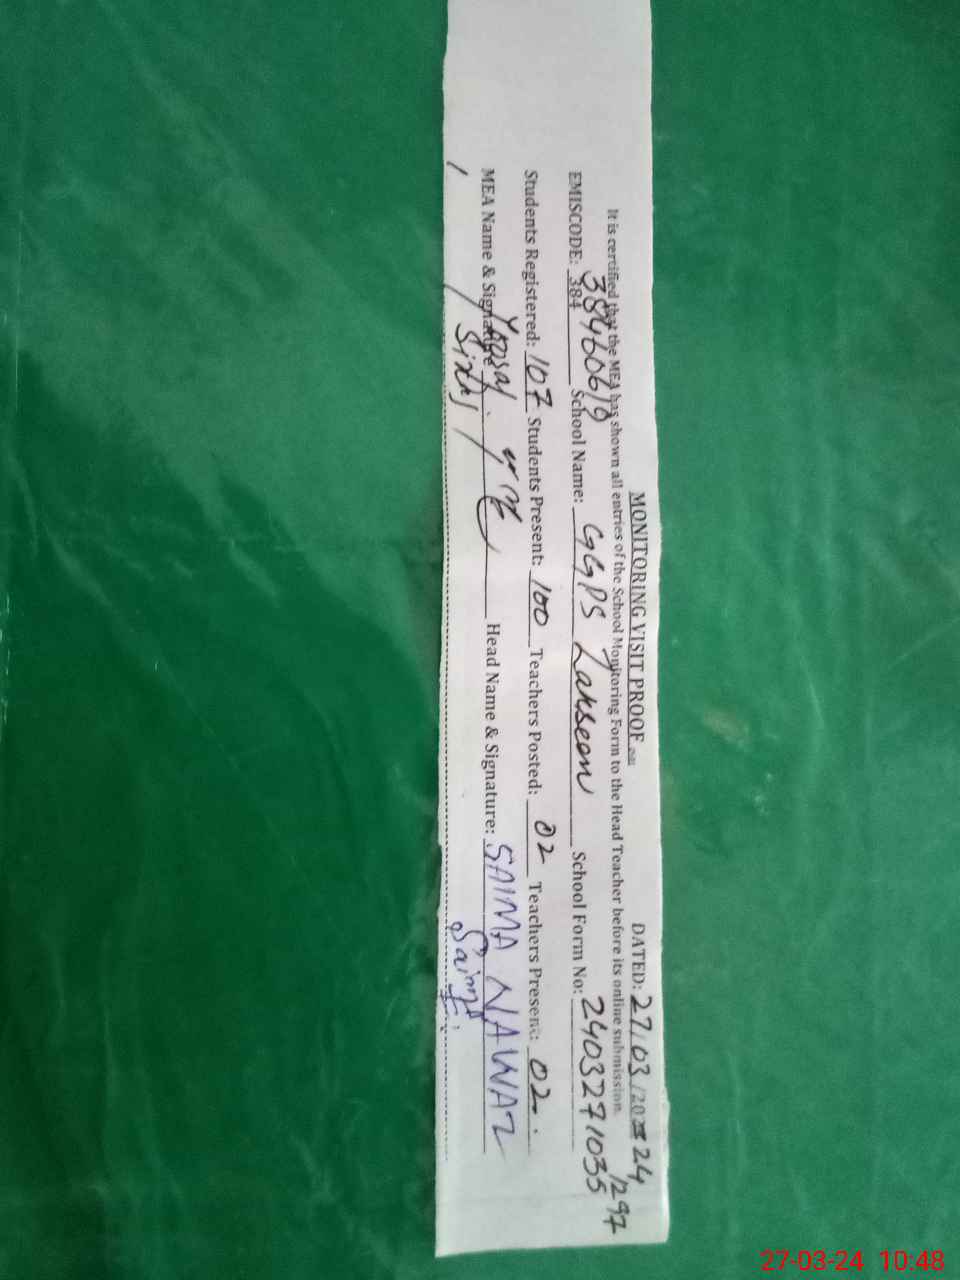 MONITORING VISIT PROOF DATED: 27/03/2024
It is certified that the MEA has shown all entries of the School Monitoring Form to the Head Teacher before its online submission.
EMISCODE: 384 38460619 School Name: GGPS School Form No: 2403271035 1297
Students Registered: 107 Students Present: 100 Teachers Posted: 02 Teachers Present: 02
MEA Name & Signature Head Name & Signature: SAIMA NAWAZ
Saima
27-03-24 10:48